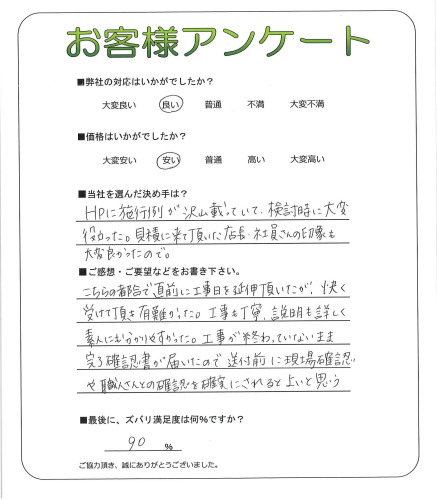 お客様アンケート
■弊社の対応はいかがでしたか？
大変良い 良い 普通 不満 大変不満
■価格はいかがでしたか？
大変安い 安い 普通 高い 大変高い
■当社を選んだ決め手は？
HPに施行例が沢山載っていて、検討時に大変
役立った。見積に来て頂いた店長・社員さんの印象も
大変良かったので。
■ご感想・ご要望などをお書き下さい。
こちらの都合で直前に工事日を延伸頂いたが、快く
受けて頂き有難かった。工事も丁寧、説明も詳しく
素人にも分かりやすかった。工事が終わっていないまま
完了確認書が届いたので送付前に現場確認
や職人さんとの確認を確実にされると よいと思う
■最後に、ズバリ満足度は何％ですか？
90 ％
ご協力頂き、誠にありがとうございました。